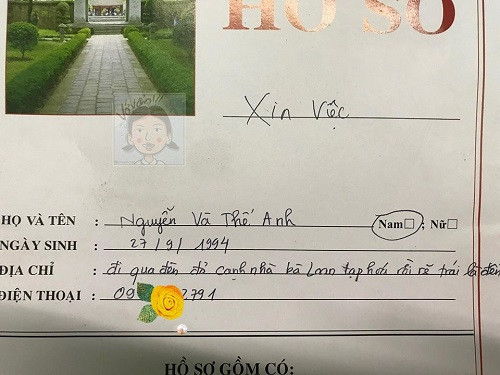 HỒ SƠ
Xin Việc
Vô Văn!!!
HỌ VÀ TÊN : Nguyễn Và Thế Anh Nam☐ ; Nữ☐
NGÀY SINH : 27/9/1994
ĐỊA CHỈ : đi qua đèn đỏ cạnh nhà bà Loan tạp hoá rồi rẽ trái là đến
ĐIỆN THOẠI : 09 2791
HỒ SƠ GỒM CÓ: